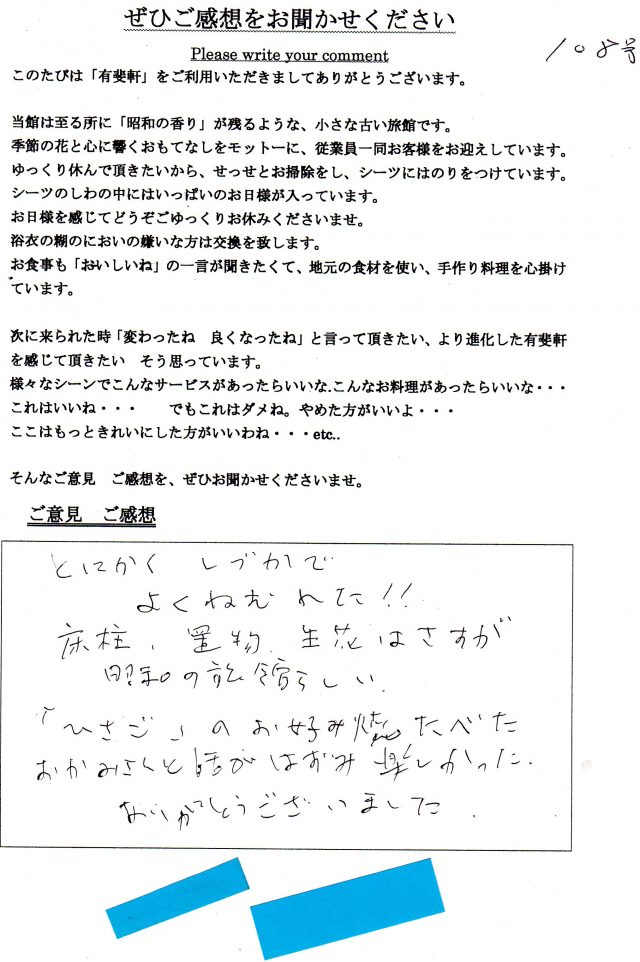 ぜひご感想をお聞かせください
Please write your comment
108号
このたびは「有斐軒」をご利用いただきましてありがとうございます。
当館は至る所に「昭和の香り」が残るような、小さな古い旅館です。
季節の花と心に響くおもてなしをモットーに、従業員一同お客様をお迎えしています。
ゆっくり休んで頂きたいから、せっせとお掃除をし、シーツにはのりをつけています。
シーツのしわの中にはいっぱいのお日様が入っています。
お日様を感じてどうぞごゆっくりお休みくださいませ。
浴衣の糊のにおいの嫌いな方は交換を致します。
お食事も「おいしいね」の一言が聞きたくて、地元の食材を使い、手作り料理を心掛け
ています。
次に来られた時「変わったね　良くなったね」と言って頂きたい、より進化した有斐軒
を感じて頂きたい　そう思っています。
様々なシーンでこんなサービスがあったらいいな.こんなお料理があったらいいな・・・
これはいいね・・・　　でもこれはダメね。やめた方がいいよ・・・
ここはもっときれいにした方がいいわね・・・etc..
そんなご意見　ご感想を、ぜひお聞かせくださいませ。
ご意見　ご感想
とにかく しづかで
よくねむれた!!
床柱、置物、生花はさすが
昭和の旅館らしい.
「ひさご」のお好み焼たべた
おかみさんと話がはずみ 楽しかった.
ありがとうございました.